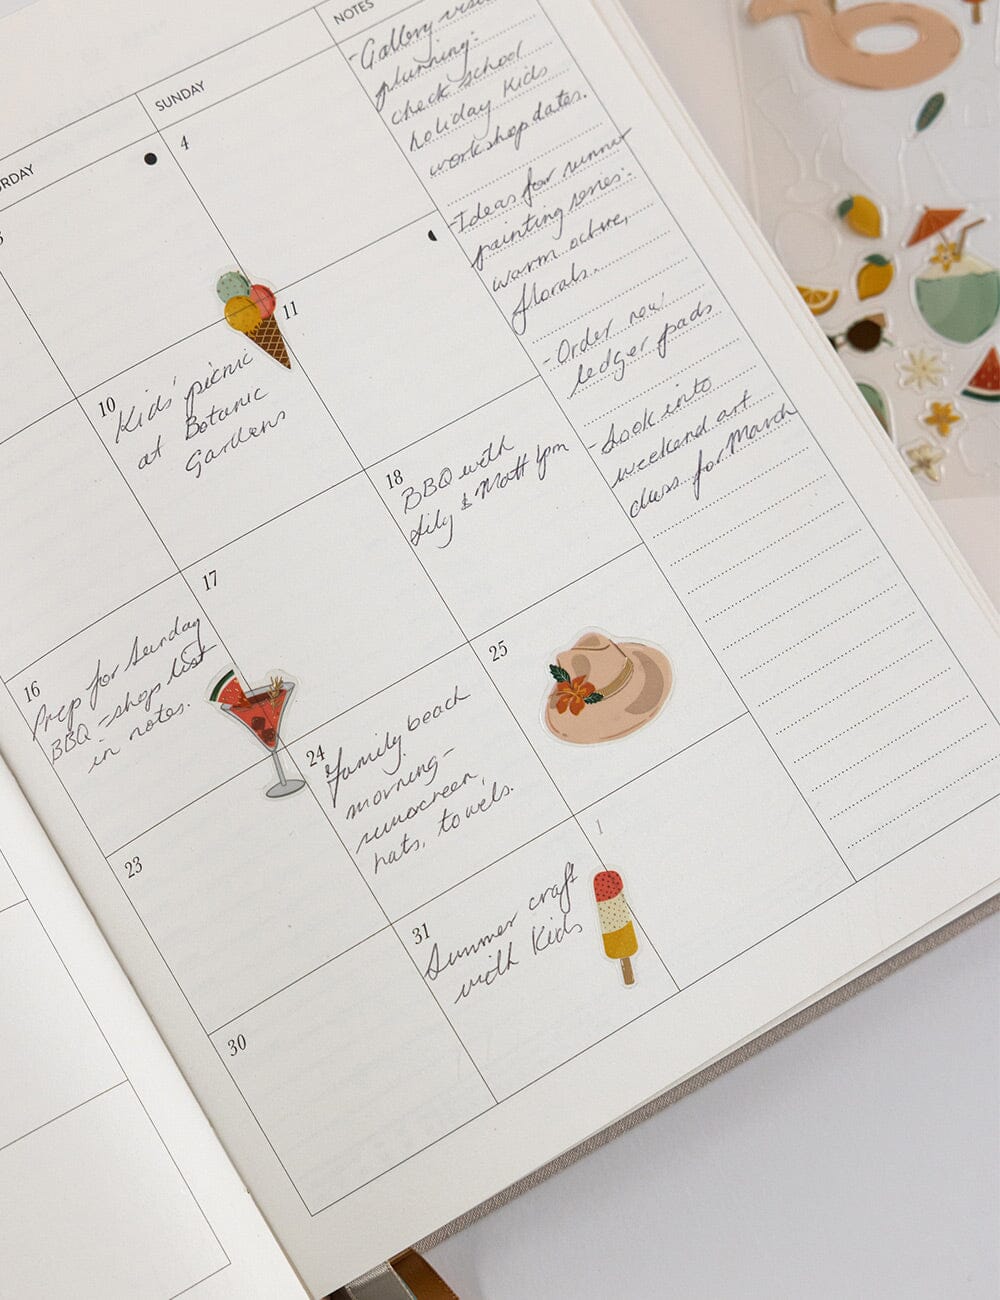 RDAY
SUNDAY
NOTES
4
10
Kids' picnic
at Botanic
Gardens
11
16
Prep for Sunday
BBQ - shop list
in notes.
17
18
BBQ with
Lily & Matt 4pm
23
24
Family beach
morning -
sunscreen,
hats, towels.
25
30
31
Summer craft
with Kids
1
- Gallery visit
planning:
check school
holiday kids
workshop dates.
- Ideas for summer
painting series:
warm ochre,
florals.
- Order new
ledger pads
- Look into
weekend art
class for March